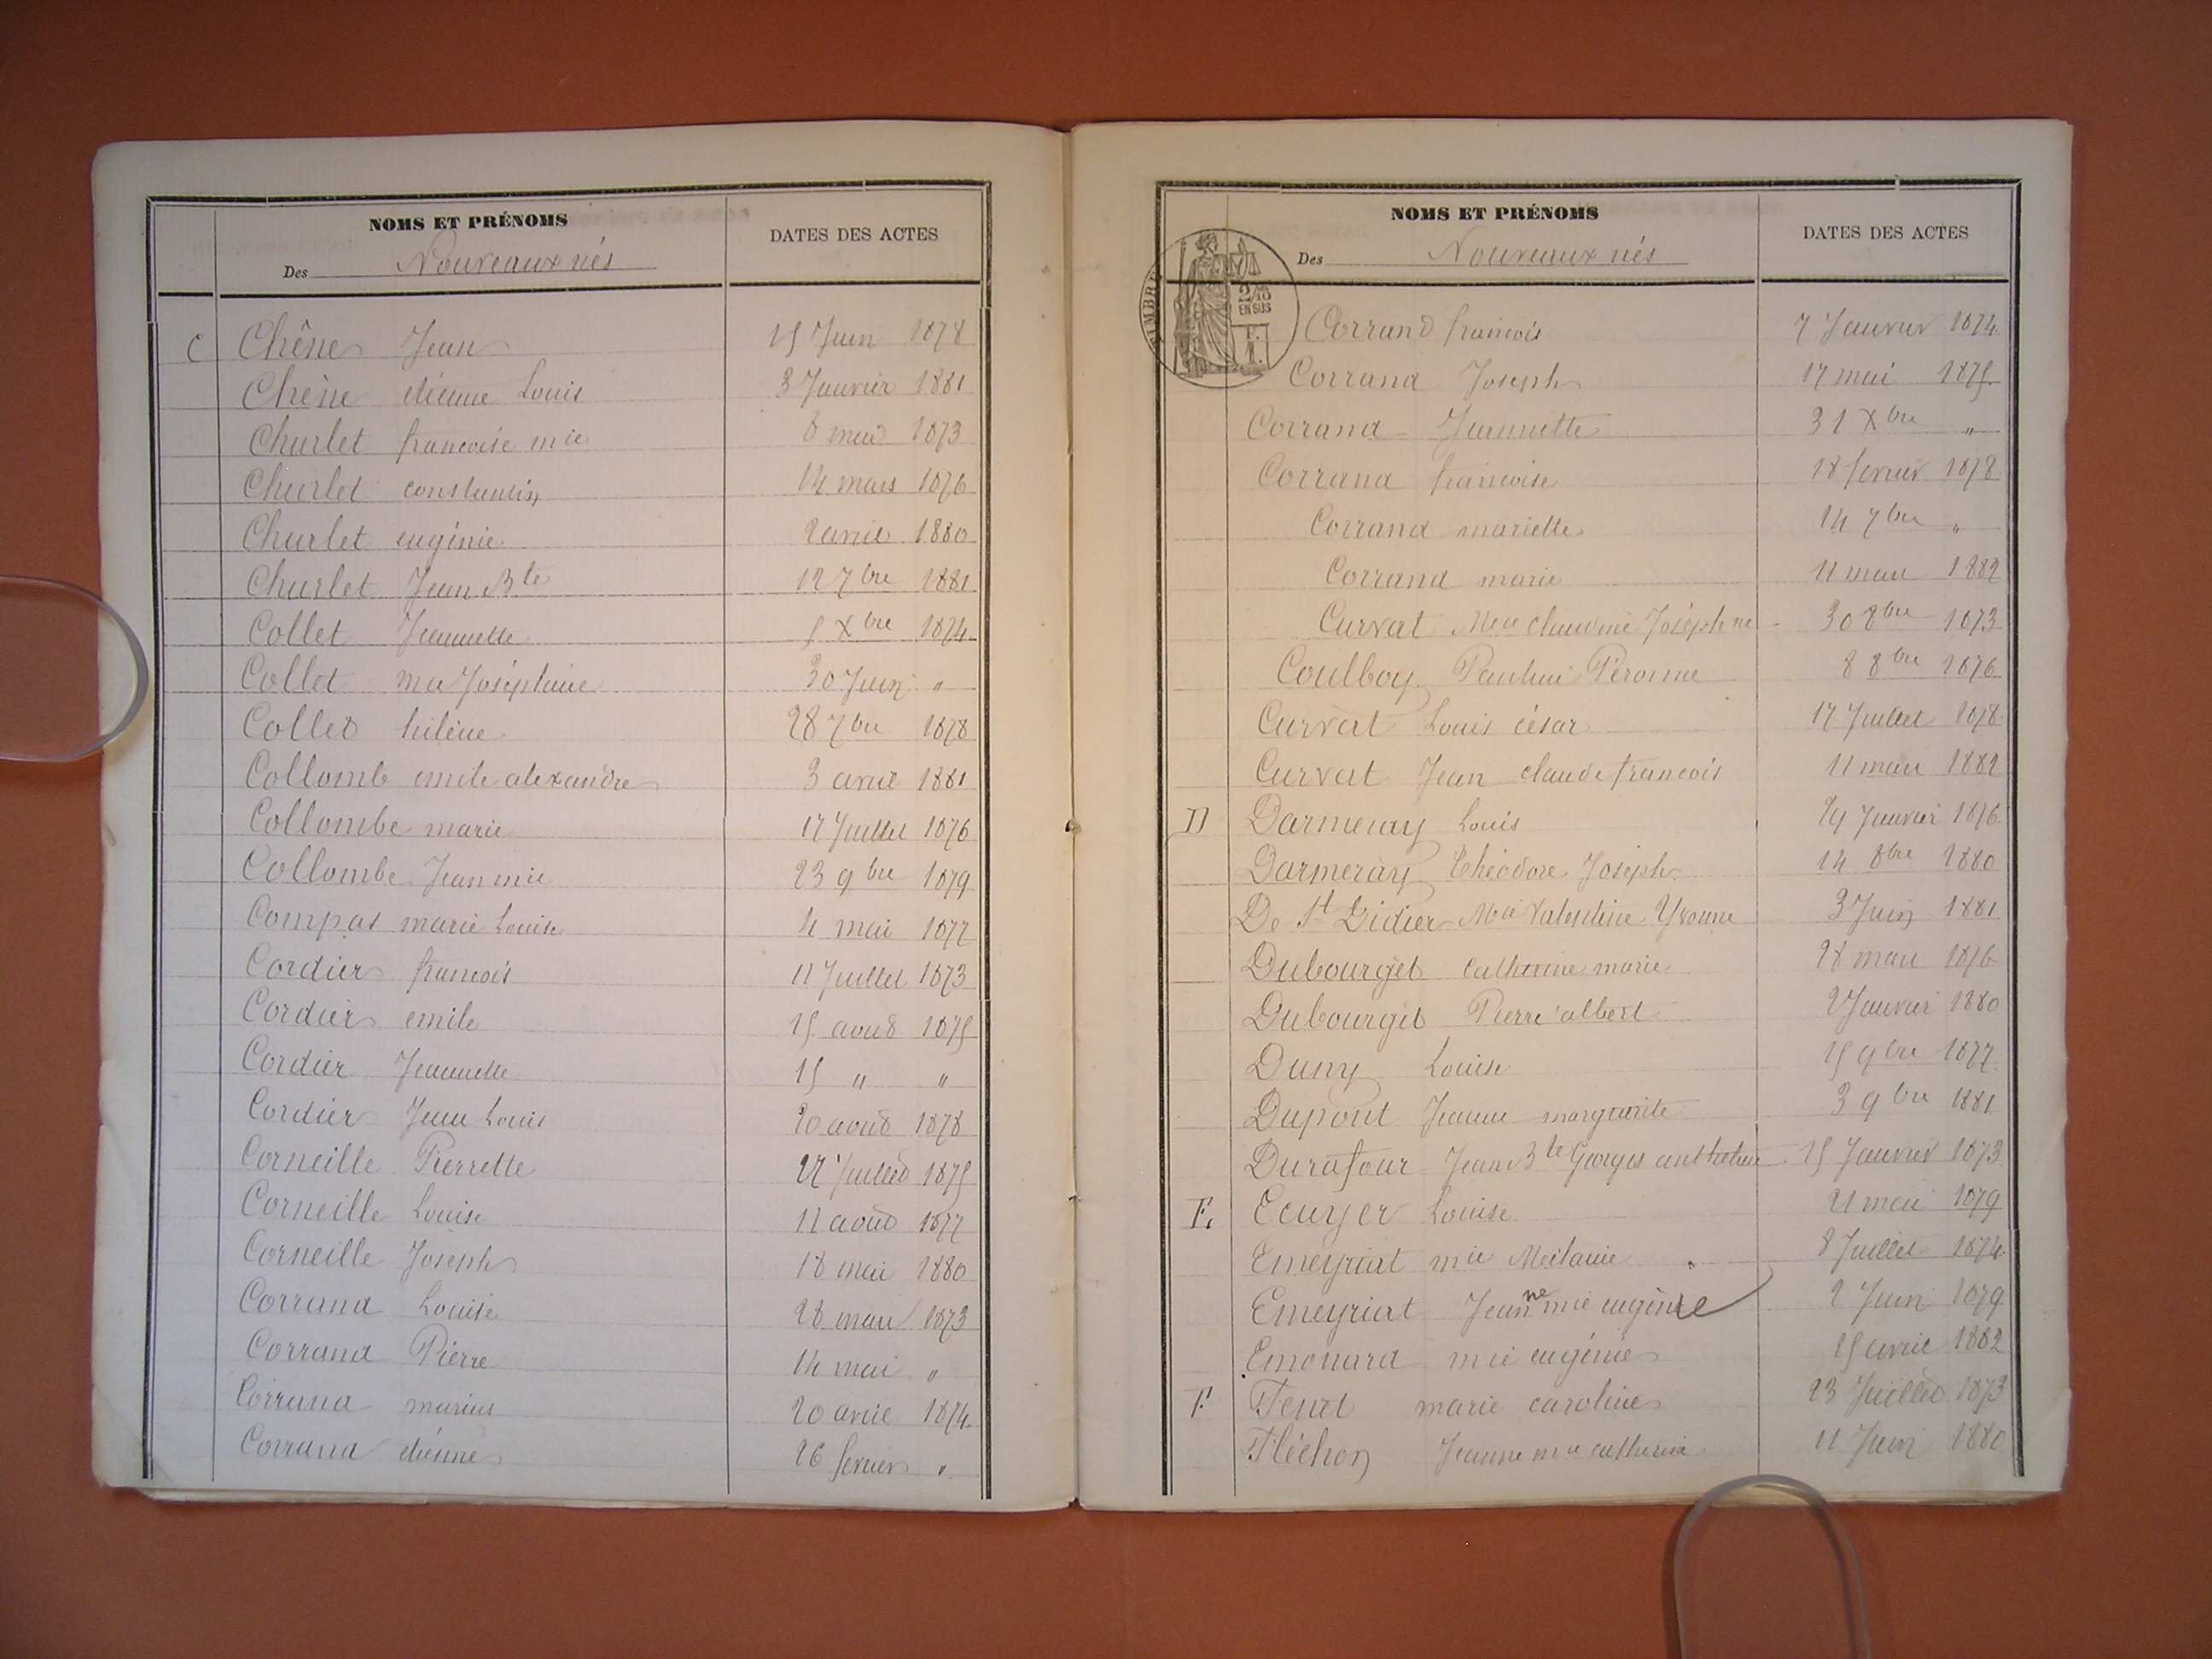 NOMS ET PRÉNOMS
DATES DES ACTES
Des Nouveaux nés
C Chêne Jean 15 Juin 1878
Chêne etienne Louis 3 Janvier 1881
Churlet francoise mie 8 mai 1873
Churlet constantin 14 mars 1876
Churlet eugénie 2 avril 1880
Churlet Jean Bte 12 7bre 1881
Collet Jeannette 5 Xbre 1874
Collet mie Joséphine 30 Juin "
Collet hélène 28 7bre 1878
Collomb emile alexandre 3 avril 1881
Collombe marie 17 Juillet 1876
Collombe Jean mie 23 9bre 1879
Compas marie Louise 4 mai 1877
Cordier francois 11 Juillet 1873
Cordier emile 15 aout 1875
Cordier Jeannette 15 " "
Cordier Jean Louis 20 aout 1878
Corneille Pierrette 27 Juillet 1875
Corneille Louise 11 aout 1877
Corneille Joseph 18 mai 1880
Corrand Louise 28 mars 1873
Corrand Pierre 14 mai "
Corrand marius 20 avril 1874
Corrand etienne 26 fevrier "
NOMS ET PRÉNOMS
DATES DES ACTES
Des Nouveaux nés
TIMBRE
2/10
EN SUS
F.
1.
Corrand francois 7 Janvier 1874
Corrand Joseph 17 mai 1875
Corrand Jeannette 31 Xbre "
Corrand francoise 18 fevrier 1878
Corrand mariette 14 7bre "
Corrand marie 11 mars 1882
Curvat Mie claudine Joséphine 30 8bre 1873
Coulboy Pauline Péronne 8 8bre 1876
Curvat Louis césar 17 Juillet 1878
Curvat Jean claude francois 11 mars 1882
D Darmeray Louis Janvier 1876
Darmeray Théodore Joseph 14 8bre 1880
De St Didier Mie Valentine Yvonne 3 Juin 1881
Dubourget Catherine marie 28 mars 1876
Dubourget Pierre albert 2 Janvier 1880
Duny Louise 15 9bre 1877
Dupont Jeanne marguerite 3 9bre 1881
Durafour Jean Bte Georges anthelme 15 Janvier 1873
E Ecuyer Louise 21 mai 1879
Emeyriat mie Melanie 8 Juillet 1874
Emeyriat Jeanne mie eugénie 2 Juin 1879
Emonard mie eugénie 15 avril 1882
F Feurt marie caroline 23 Juillet 1873
Fléchon Jeanne mie catherine 11 Juin 1880